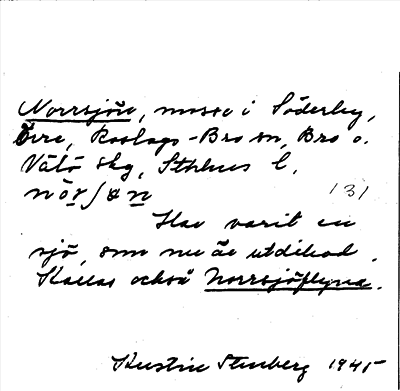 Norrsjön, mosse i Söderby,
Övre, Roslags-Bro sn, Bro o.
Vätö skg, Sthlms l.
nòr∫ön 131
Har varit en
sjö, som nu är utdikad.
Kallas också Norrsjöflyna.
Kerstin Stenberg 1945